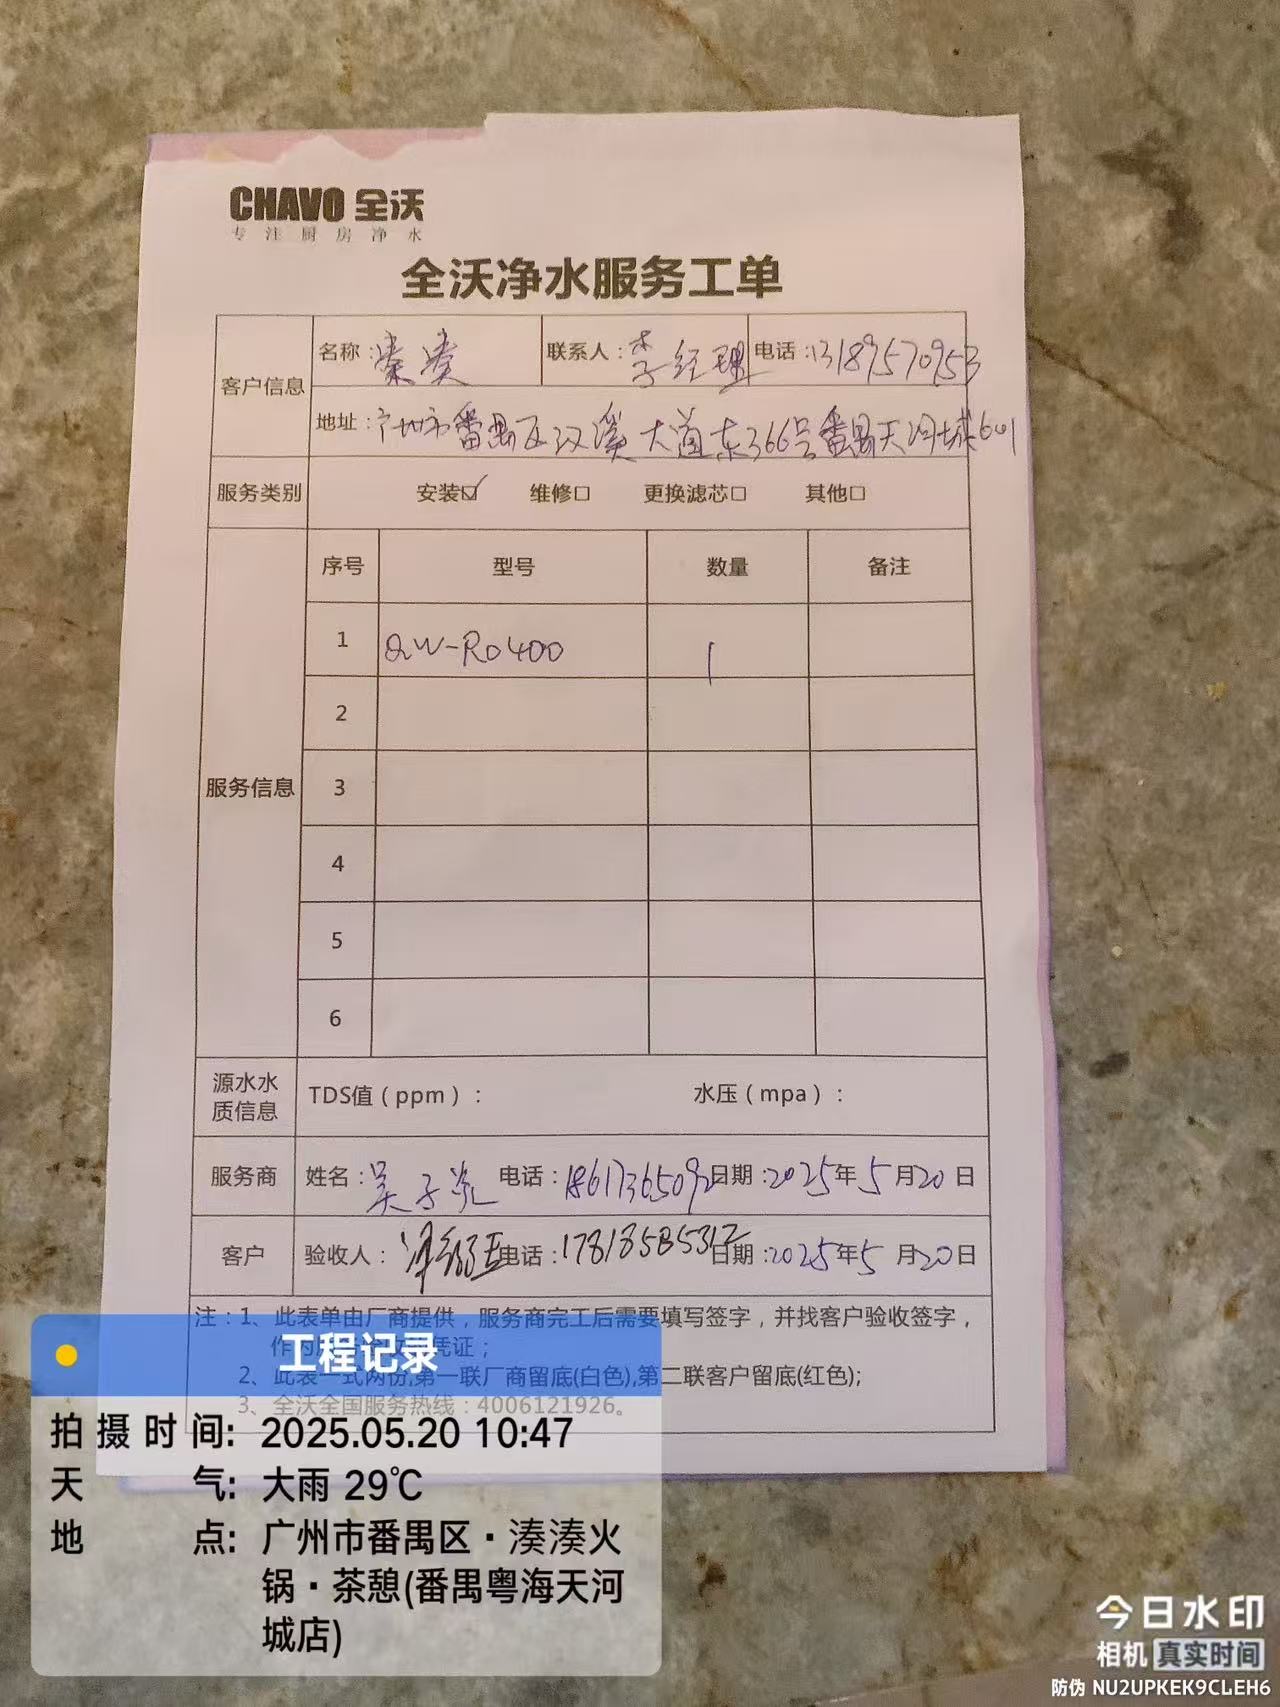 CHAVO 全沃
专注厨房净水
全沃净水服务工单
客户信息 名称： 联系人：李经理 电话：13189570953
地址：广州市番禺区汉溪大道东366号番禺天河城601
服务类别 安装☑ 维修□ 更换滤芯□ 其他□
服务信息
序号 型号 数量 备注
1 QW-RO400 1
2
3
4
5
6
源水水质信息 TDS值（ppm）： 水压（mpa）：
服务商 姓名：吴子 电话：18617365092 日期：2025年5月20日
客户 验收人： 电话：17818585312 日期：2025年5月20日
注：1、此表单由厂商提供，服务商完工后需要填写签字，并找客户验收签字，
作为 凭证；
2、此表一式两份,第一联厂商留底(白色),第二联客户留底(红色);
3、全沃全国服务热线：4006121926。
工程记录
拍摄时间: 2025.05.20 10:47
天气: 大雨 29℃
地点: 广州市番禺区·湊湊火
锅·茶憩(番禺粤海天河
城店)
今日水印
相机 真实时间
防伪 NU2UPKEK9CLEH6